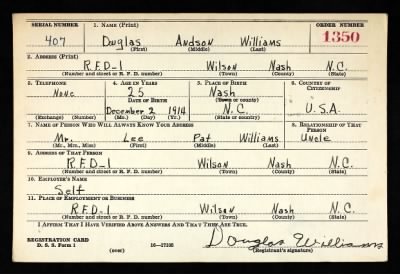 SERIAL NUMBER 1. NAME (Print) ORDER NUMBER
407 Douglas Andson Williams 1350
(First) (Middle) (Last)
2. ADDRESS (Print)
R.F.D-1 Wilson Nash N.C.
(Number and street or R. F. D. number) (Town) (County) (State)
3. TELEPHONE 4. AGE IN YEARS 5. PLACE OF BIRTH 6. COUNTRY OF CITIZENSHIP
None 25 Nash
DATE OF BIRTH (Town or county)
December 2, 1914 N.C. U.S.A.
(Exchange) (Number) (Mo.) (Day) (Yr.) (State or country)
7. NAME OF PERSON WHO WILL ALWAYS KNOW YOUR ADDRESS 8. RELATIONSHIP OF THAT PERSON
Mr. Lee Pat Williams Uncle
(Mr., Mrs., Miss) (First) (Middle) (Last)
9. ADDRESS OF THAT PERSON
R.F.D-1 Wilson Nash N.C.
(Number and street or R. F. D. number) (Town) (County) (State)
10. EMPLOYER'S NAME
Self
11. PLACE OF EMPLOYMENT OR BUSINESS
R.F.D-1 Wilson Nash N.C.
(Number and street or R. F. D. number) (Town) (County) (State)
I AFFIRM THAT I HAVE VERIFIED ABOVE ANSWERS AND THAT THEY ARE TRUE.
REGISTRATION CARD Douglas Williams
D. S. S. Form 1 (over) 16—17105 (Registrant's signature)